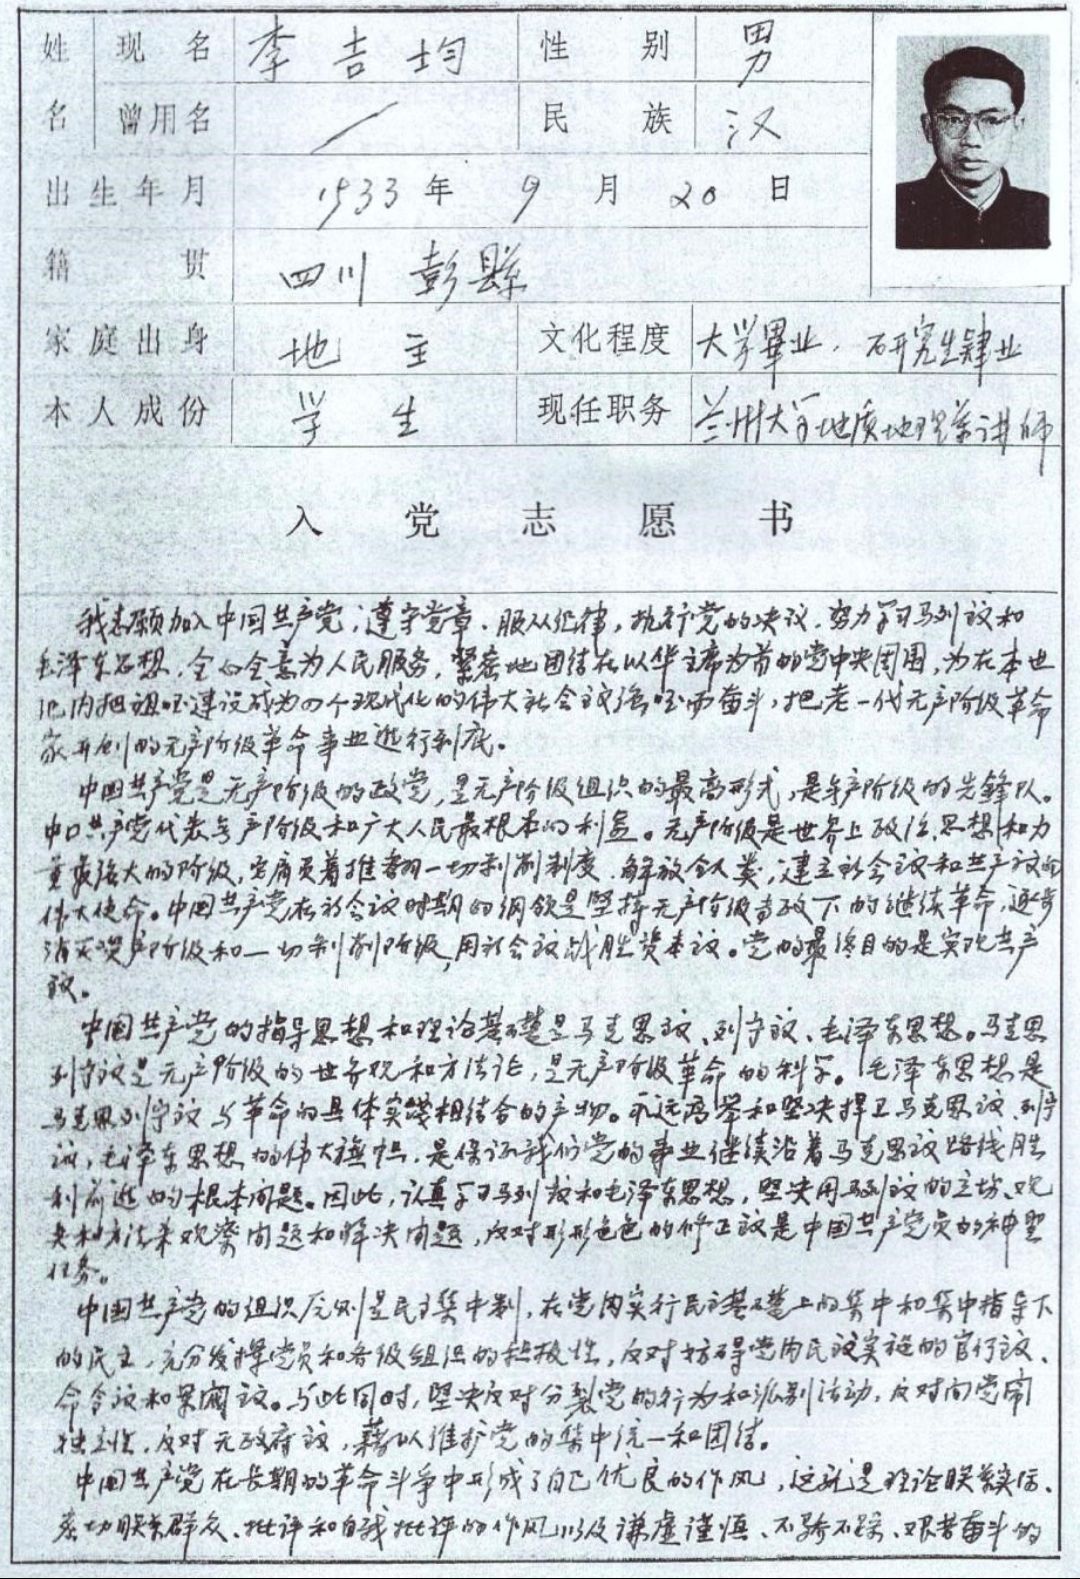 姓 现名 李吉均 性别 男
名 曾用名 / 民族 汉
出生年月 1933年 9月 20日
籍贯 四川 彭縣
家庭出身 地主 文化程度 大学畢业,研究生肄业
本人成份 学生 现任职务 兰州大学地质地理系讲师
入党志愿书
我志願加入中国共产党,遵守党章、服从纪律,执行党的决议,努力学习马列主义和
毛泽东思想,全心全意为人民服务,緊密地团结在以华主席为首的党中央周围,为在本世
纪内把祖国建设成为四个现代化的伟大社会主义强国而奋斗,把老一代无产阶级革命
家开创的无产阶级革命事业进行到底。
中国共产党是无产阶级的政党,是无产阶级组织的最高形式,是无产阶级的先鋒队。
中国共产党代表无产阶级和广大人民最根本的利益。无产阶级是世界上政治、思想和力
量最强大的阶级,它肩负着推翻一切剥削制度、解放全人类,建立社会主义和共产主义的
伟大使命。中国共产党在社会主义时期的纲领是坚持无产阶级专政下的继续革命,逐步
消灭资产阶级和一切剥削阶级,用社会主义战胜资本主义。党的最终目的是实现共产
主义。
中国共产党的指导思想和理论基础是马克思主义、列宁主义、毛泽东思想。马克思
列宁主义是无产阶级的世界观和方法论,是无产阶级革命的科学。毛泽东思想是
马克思列宁主义与革命的具体实践相结合的产物。永远高举和坚决捍卫马克思主义、列宁
主义、毛泽东思想的伟大旗帜,是保证我们党的事业继续沿着马克思主义路线胜
利前进的根本问题。因此,认真学习马列主义和毛泽东思想,坚决用马列主义的立场、观
点和方法来观察问题和解决问题,反对形形色色的修正主义是中国共产党员的神聖
任务。
中国共产党的组织原则是民主集中制,在党内实行民主基础上的集中和集中指导下
的民主,充分发挥党员和各级组织的积极性,反对妨碍党内民主实施的官僚主义、
命令主义和
与此同时,坚决反对分裂党的行为和派别活动,反对向党闹
独立性,反对无政府主义,藉以维护党的集中统一和团结。
中国共产党在长期的革命斗争中形成了自己优良的作风,这就是理论联系实际、
密切联系群众、批评和自我批评的作风以及谦虚谨慎、不骄不躁、艰苦奋斗的